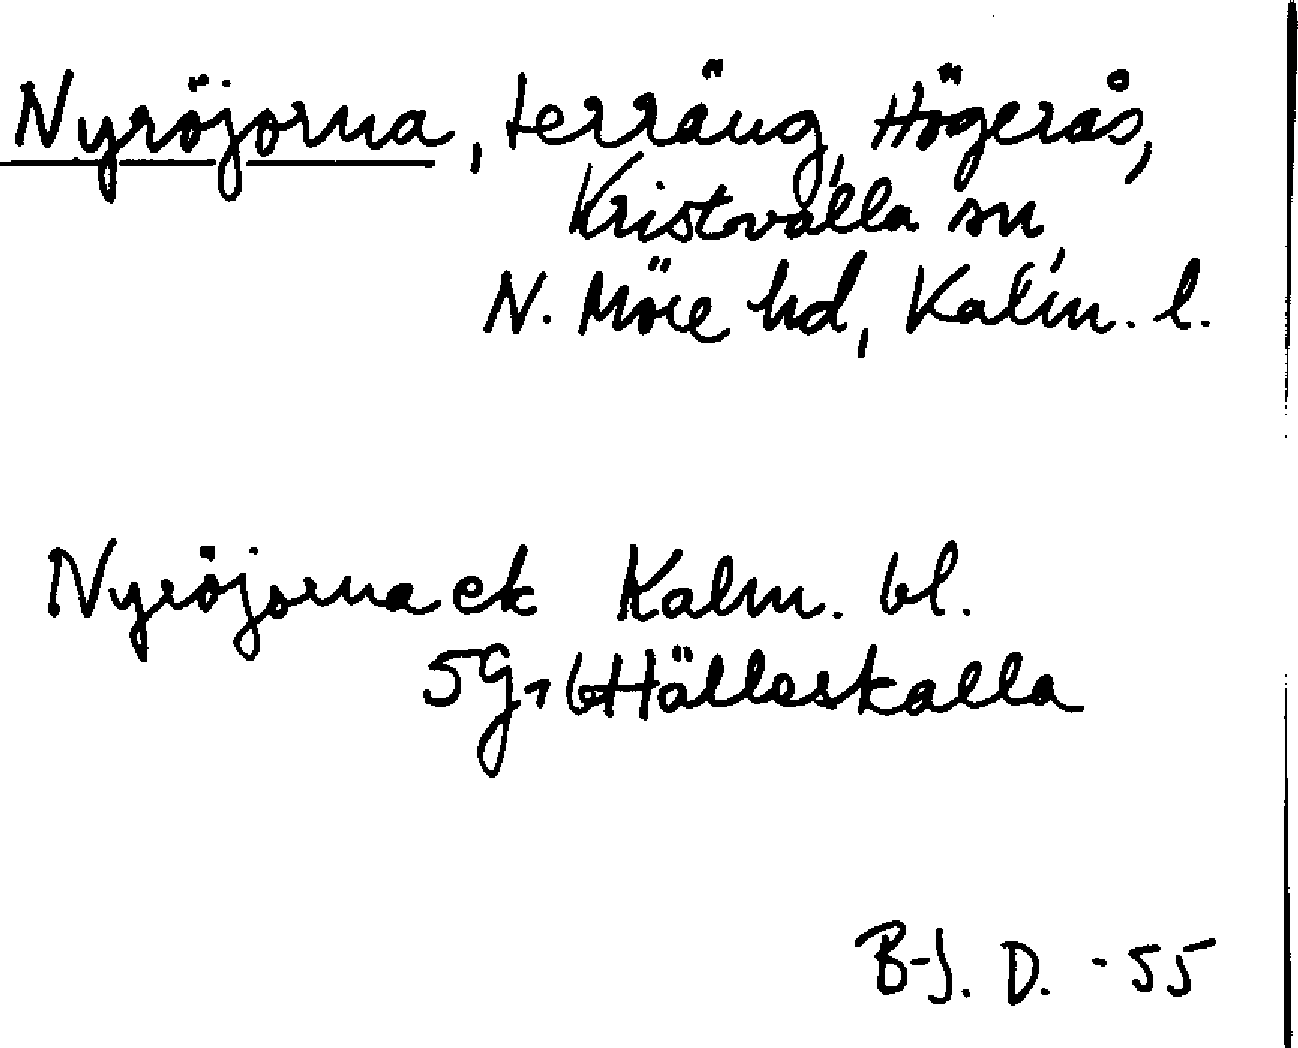 Nyröjorna, terräng, Högerås,
Kristvalla sn,
N. Möre hd, Kalm. l.
Nyröjorna ek Kalm. bl.
5G, 6H Hälleskalla
B-J. D. -55